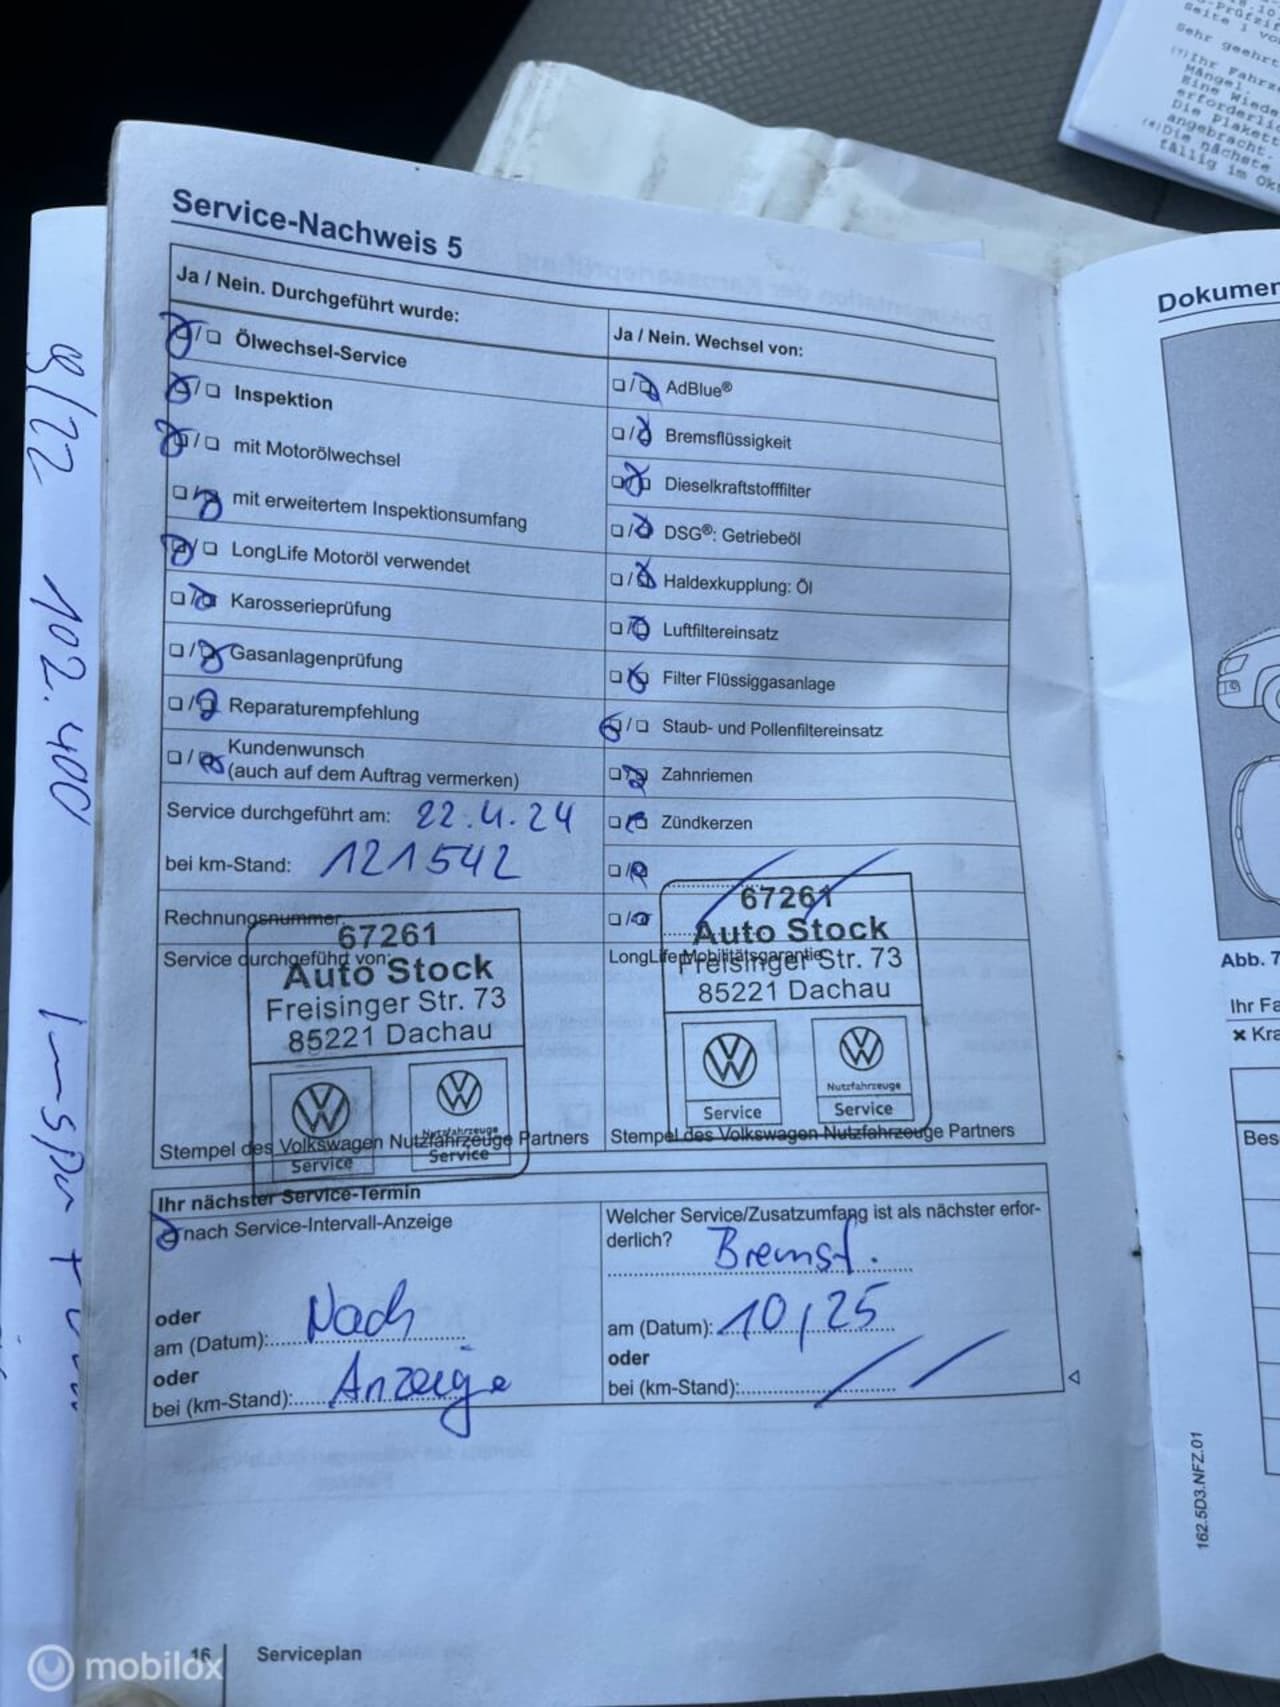 Service-Nachweis 5
Ja / Nein. Durchgeführt wurde:
Ölwechsel-Service
Inspektion
mit Motorölwechsel
mit erweitertem Inspektionsumfang
LongLife Motoröl verwendet
Karosserieprüfung
Gasanlagenprüfung
Reparaturempfehlung
Kundenwunsch
(auch auf dem Auftrag vermerken)
Service durchgeführt am: 22.4.24
bei km-Stand: 121542
Rechnungsnummer
Service durchgeführt von:
67261
Auto Stock
Freisinger Str. 73
85221 Dachau
Nutzfahrzeuge
Service
Service
Stempel des Volkswagen Nutzfahrzeuge Partners
Ja / Nein. Wechsel von:
AdBlue®
Bremsflüssigkeit
Dieselkraftstofffilter
DSG®: Getriebeöl
Haldexkupplung: Öl
Luftfiltereinsatz
Filter Flüssiggasanlage
Staub- und Pollenfiltereinsatz
Zahnriemen
Zündkerzen
67261
Auto Stock
LongLife Mobilitätsgarantie
Freisinger Str. 73
85221 Dachau
Nutzfahrzeuge
Service
Service
Stempel des Volkswagen Nutzfahrzeuge Partners
Ihr nächster Service-Termin
nach Service-Intervall-Anzeige
oder
am (Datum): Nach
oder
bei (km-Stand): Anzeige
Welcher Service/Zusatzumfang ist als nächster erfor-
derlich? Bremsf.
am (Datum): 10/25
oder
bei (km-Stand):
16
Serviceplan
08/22 102.400
Dokumen
Abb. 7
Ihr Fa
Kra
Bes
162.5D3.NFZ.01
Seite 1 vo
Sehr geehrt
Ihr Fahrze
Mängel.
Eine Wiede
erforderli
Die Plakett
angebracht.
Die nächste
fällig im Ok
mobilox